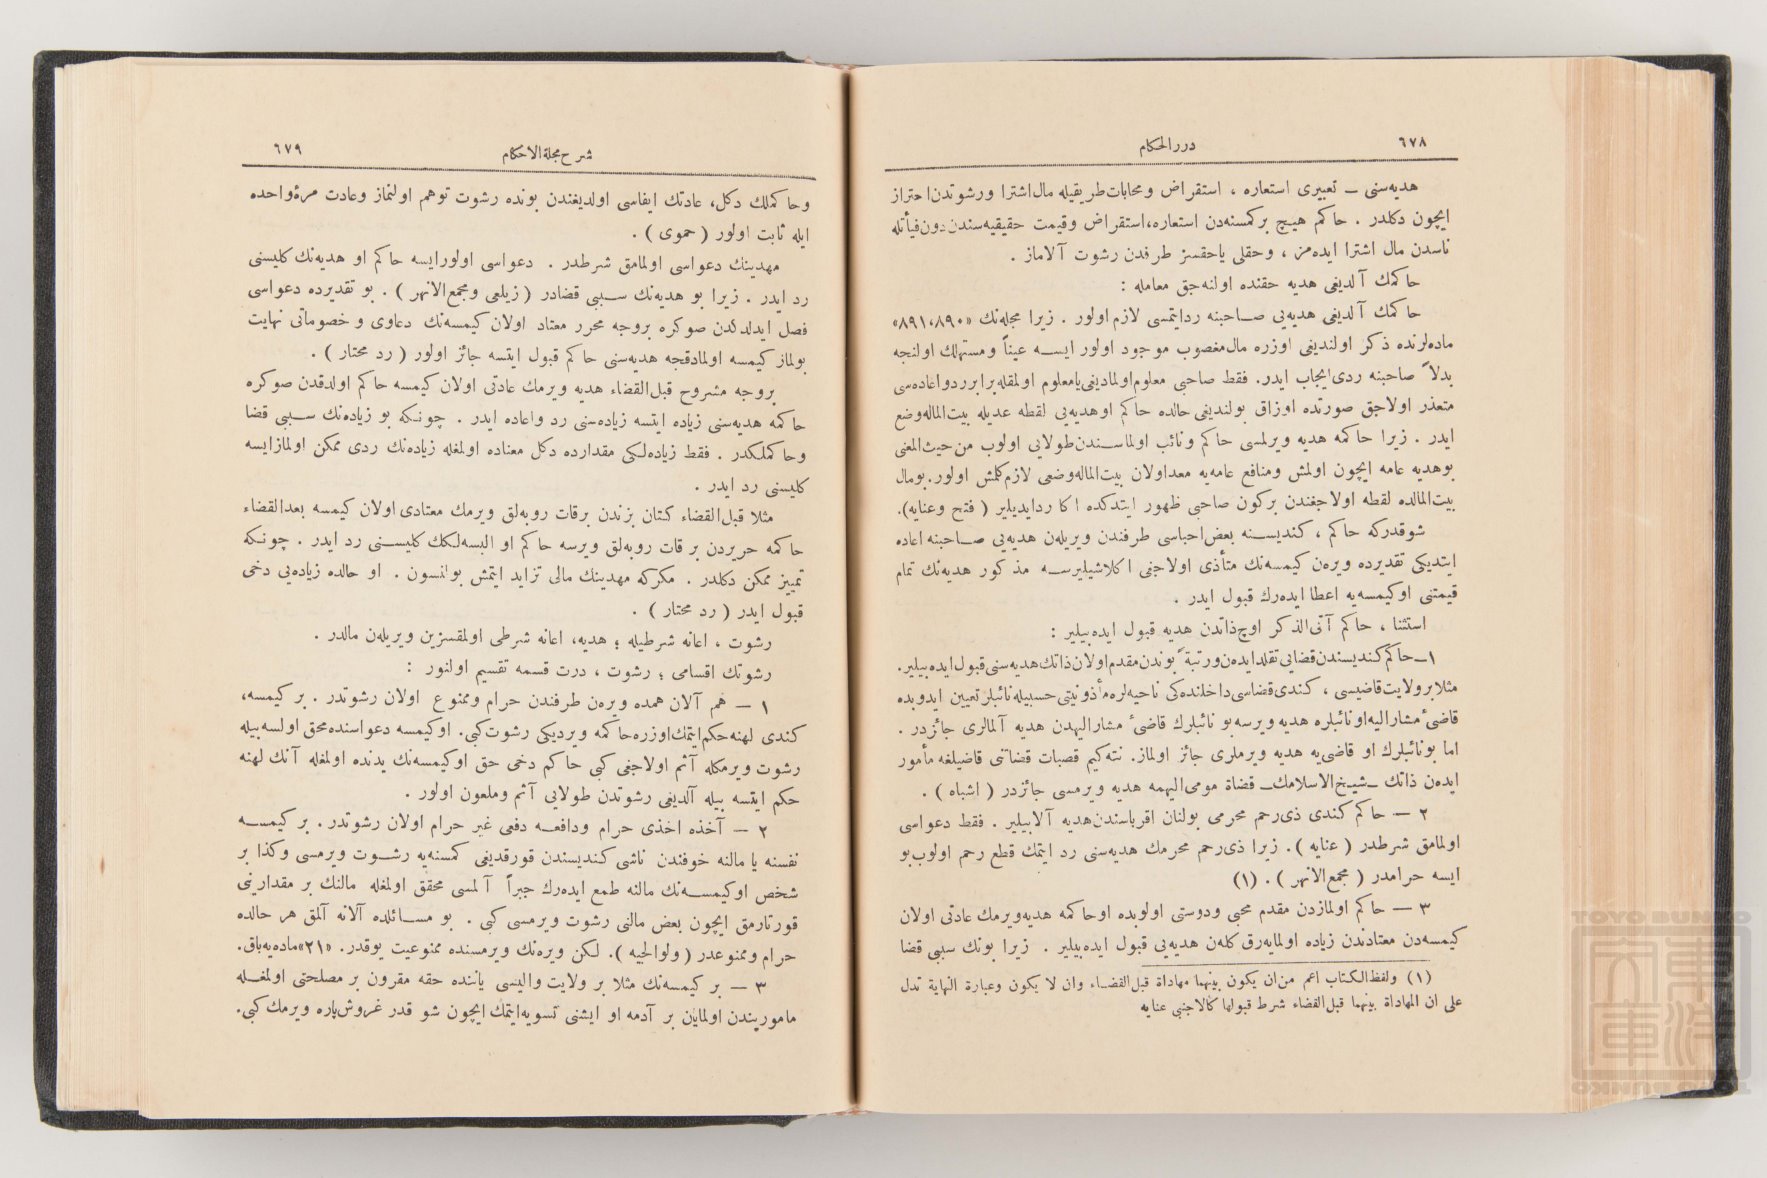 ٦٧٨
دررالحكام
هديه‌سنی ــ تعبيری استعاره ، استقراض و محابات طريقيله مال اشترا و رشوتدن احتراز
ايچون دكلدر . حاكم هيچ بركمسنه‌دن استعاره، استقراض وقيمت حقيقيه‌سندن دون فيأتله
ناسدن مال اشترا ايده‌مز ، وحقلی ياحقسز طرفدن رشوت آلاماز .
حاكمك آلديغی هديه حقنده اولنه‌جق معامله :
حاكمك آلديغی هديه‌يی صاحبنه ردايتمسی لازم اولور . زيرا مجله‌نك «٨٩٠،٨٩١»
ماده‌لرنده ذكر اولنديغی اوزره مال مغصوب موجود اولور ايسه عيناً ومستهلك اولنجه
بدلاً صاحبنه ردی ايجاب ايدر. فقط صاحبی معلوم اولماديغی يامعلوم اولمقله برابر رد و اعاده‌سی
متعذر اولاجق صورتده اوزاق بولنديغی حالده حاكم او هديه‌يی لقطه عديله بيت‌الماله وضع
ايدر . زيرا حاكمه هديه ويرلمسی حاكم ونائب اولماسندن طولايی اولوب من حيث‌المعنی
بوهديه عامه ايچون اولمش ومنافع عامه‌يه معد اولان بيت‌الماله وضعی لازم كلمش اولور. بومال
بيت‌المالده لقطه اولاجغندن بركون صاحبی ظهور ايتدكده اكا ردايديلير ( فتح وعنايه).
شوقدركه حاكم ، كنديسنه بعض احباسی طرفندن ويريلن هديه‌يی صاحبنه اعاده
ايتديكی تقديرده ويرەن كيمسه‌نك متأذی اولاجغی اكلاشيليرسه مذكور هديه‌نك تمام
قيمتنی اوكيمسه‌يه اعطا ايده‌رك قبول ايدر .
استثنا ، حاكم آتی‌الذكر اوچ ذاتدن هديه قبول ايده‌بيلير :
١ــ حاكم كنديسندن قضايی تقلد ايده‌ن ورتبةً بوندن مقدم اولان ذاتك هديه‌سنی قبول ايده بيلير.
مثلا بر ولايت قاضيسی ، كندی قضاسی داخلنده‌كی ناحيه‌لره مأذونيتی حسبيله نائبلر تعيين ايدوبده
قاضیء مشاراليه او نائبلره هديه ويرسه بو نائبلرك قاضیء مشاراليهدن هديه آلمالری جائزدر .
اما بونائبلرك او قاضی‌يه هديه ويرملری جائز اولماز. نته‌كيم قصبات قضاتنی قاضيلغه مأمور
ايده‌ن ذاتك ــ شيخ‌الاسلامك ــ قضاة مومی‌اليهمه هديه ويرمسی جائزدر ( اشباه ) .
٢ ــ حاكم كندی ذی‌رحم محرمی بولنان اقرباسندن هديه آلابيلير . فقط دعواسی
اولمامق شرطدر ( عنايه ) . زيرا ذی‌رحم محرمك هديه‌سنی رد ايتمك قطع رحم اولوب بو
ايسه حرامدر ( مجمع‌الانهر ) . (١)
٣ ــ حاكم اولمازدن مقدم محبی ودوستی اولوبده اوحاكمه هديه ويرمك عادتی اولان
كيمسه‌دن معتادندن زياده اولمايه‌رق كلەن هديه‌يی قبول ايده‌بيلير . زيرا بونك سببی قضا
(١) ولفظ‌الكتاب اعم من‌ان يكون بينهما مهاداة قبل‌القضاء وان لا يكون وعبارة النهاية تدل
على ان المهاداة بينهما قبل‌القضاء شرط قبولها كالاجنبی عنايه
٦٧٩
شرح مجلة‌الاحكام
وحاكملك دكل، عادتك ايفاسی اولديغندن بونده رشوت توهم اولنماز وعادت مرةً واحده
ايله ثابت اولور ( حموی ) .
مهدينك دعواسی اولمامق شرطدر . دعواسی اولورايسه حاكم او هديه‌نك كليسنی
رد ايدر . زيرا بو هديه‌نك سببی قضادر ( زيلعی ومجمع‌الانهر ) . بو تقديرده دعواسی
فصل ايدلدكدن صوكره بروجه محرر معتاد اولان كيمسه‌نك دعاوی و خصوماتی نهايت
بولماز كيمسه اولمادقجه هديه‌سنی حاكم قبول ايتسه جائز اولور ( رد محتار ) .
بروجه مشروح قبل‌القضاء هديه ويرمك عادتی اولان كيمسه حاكم اولدقدن صوكره
حاكمه هديه‌سنی زياده ايتسه زياده‌سنی رد واعاده ايدر . چونكه بو زياده‌نك سببی قضا
وحاكملكدر . فقط زياده‌لكی مقدارده دكل معناده اولمغله زياده‌نك ردی ممكن اولمازايسه
كليسنی رد ايدر .
مثلا قبل‌القضاء كتان بزندن برقات روبه‌لق ويرمك معتادی اولان كيمسه بعدالقضاء
حاكمه حريردن برقات روبه‌لق ويرسه حاكم او البسه‌لكك كليسنی رد ايدر . چونكه
تمييز ممكن دكلدر . مكركه مهدينك مالی تزايد ايتمش بولنسون . او حالده زياده‌يی دخی
قبول ايدر ( رد محتار ) .
رشوت ، اعانه شرطيله ؛ هديه، اعانه شرطی اولمقسزين ويريلەن مالدر .
رشوتك اقسامی ؛ رشوت ، درت قسمه تقسيم اولنور :
١ ــ هم آلان همده ويرەن طرفندن حرام وممنوع اولان رشوتدر . بر كيمسه،
كندی لهنه حكم ايتمك اوزره حاكمه ويرديكی رشوت كبی. اوكيمسه دعواسنده محق اولسه بيله
رشوت ويرمكله آثم اولاجغی كبی حاكم دخی حق اوكيمسه‌نك يدنده اولمغله آنك لهنه
حكم ايتسه بيله آلديغی رشوتدن طولايی آثم وملعون اولور .
٢ ــ آخذه اخذی حرام ودافعه دفعی غير حرام اولان رشوتدر . بر كيمسه
نفسنه يا مالنه خوفندن ناشی كنديسندن قورقديغی كمسنه‌يه رشوت ويرمسی وكذا بر
شخص اوكيمسه‌نك مالنه طمع ايده‌رك جبراً آلمسی محقق اولمغله مالنك بر مقدارينی
قورتارمق ايچون بعض مالنی رشوت ويرمسی كبی . بو مسائلده آلانه آلمق هر حالده
حرام وممنوعدر ( ولوالجيه ). لكن ويره‌نك ويرمسنده ممنوعيت يوقدر. «٢١» ماده‌يه باق.
٣ ــ بر كيمسه‌نك مثلا بر ولايت واليسی ياننده حقه مقرون بر مصلحتی اولمغله
ماموريندن اولمايان بر آدمه او ايشنی تسويه ايتمك ايچون شو قدر غروش پاره ويرمك كبی.
TOYO BUNKO
東洋文庫